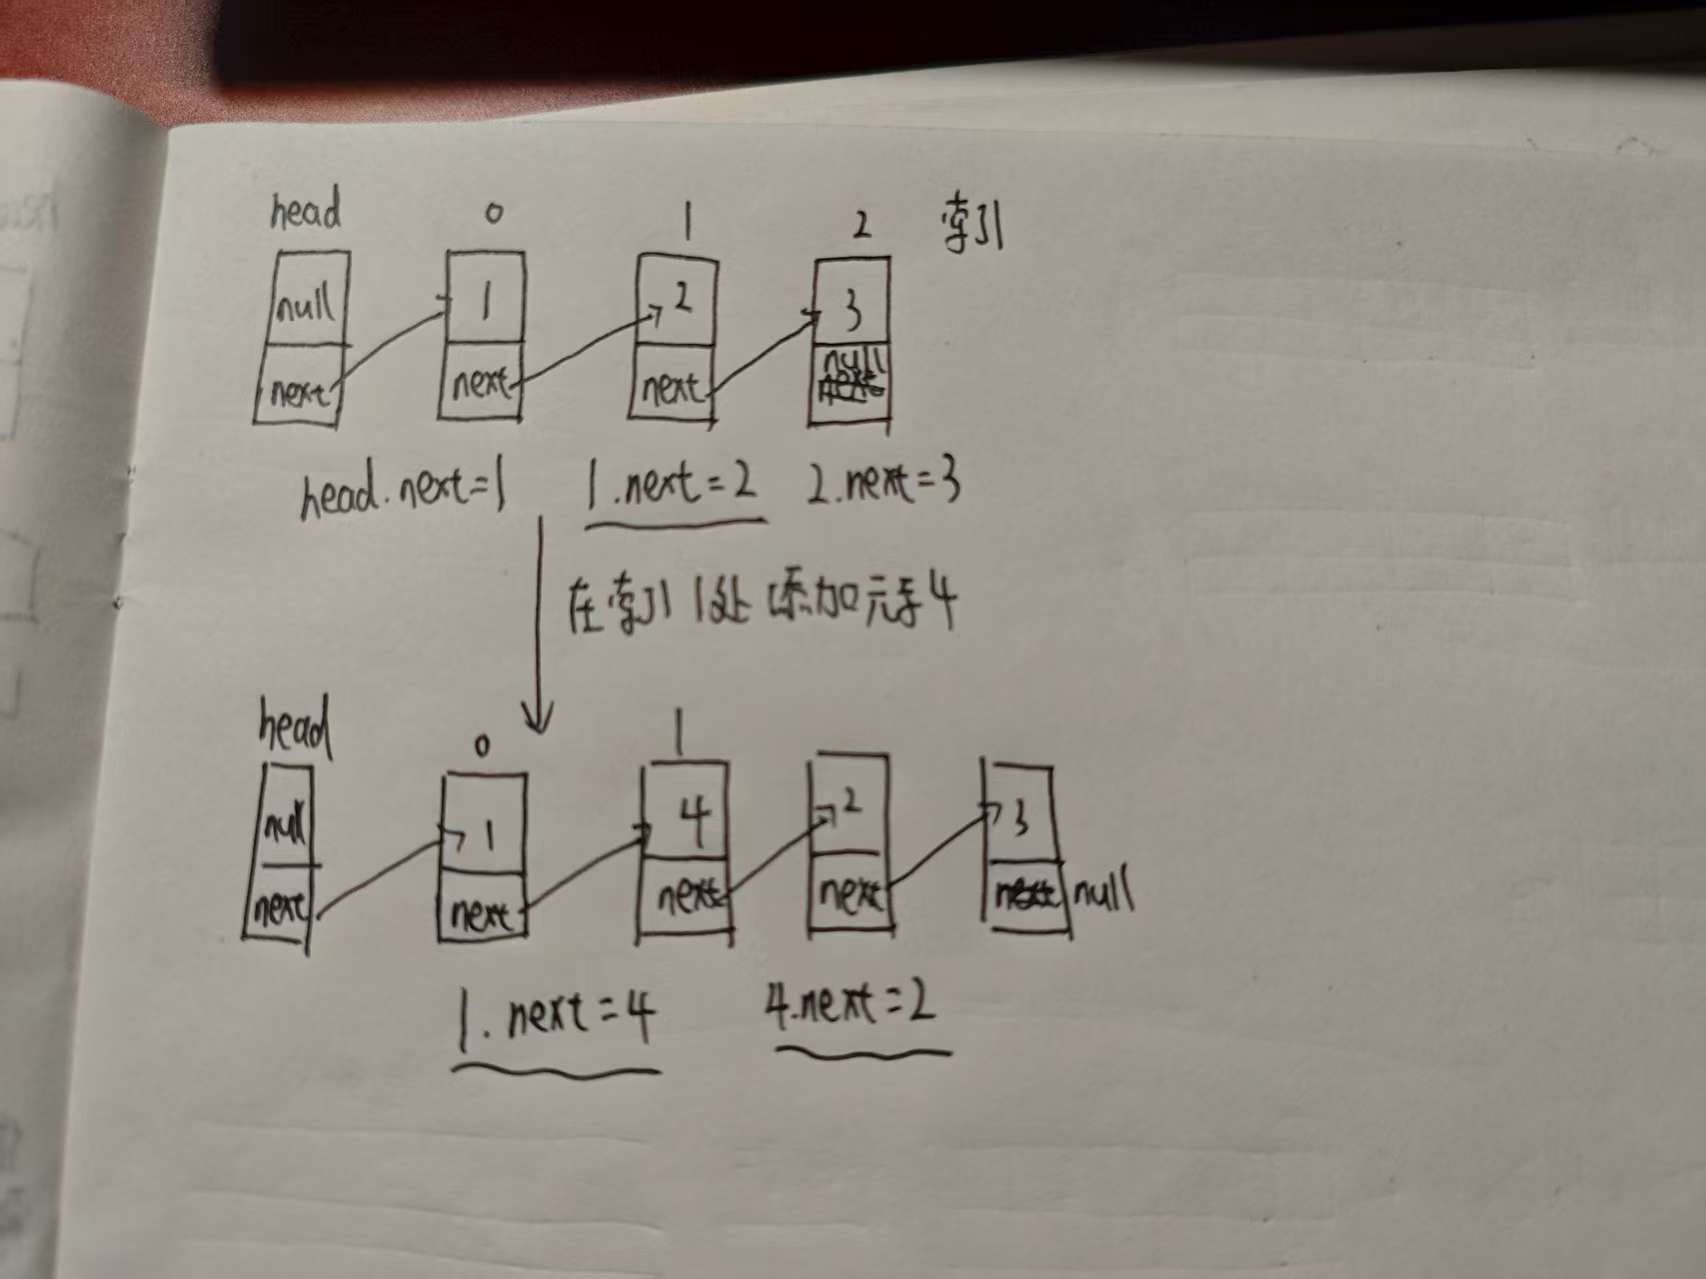 head 0 1 2 索引
null 1 2 3
next next next null
head.next=1 1.next=2 2.next=3
在索引1处添加元素4
head 0 1
null 1 4 2 3
next next next next next null
1.next=4 4.next=2